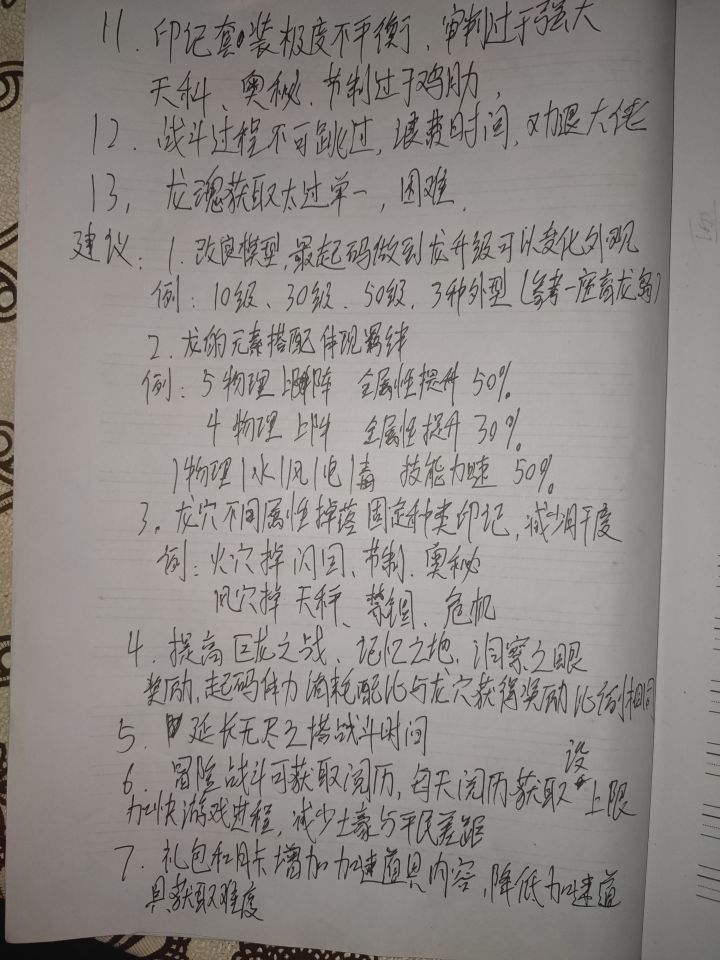 11. 印记套装极度不平衡、审判过于强大
天秤、奥秘、节制过于鸡肋,
12. 战斗过程不可跳过, 浪费时间, 劝退大佬
13, 龙魂获取太过单一, 困难.
建议: 1. 改良模型, 最起码做到龙升级可以变化外观
例: 10级、30级、50级、3种外型 (参考一座育龙岛)
2. 龙的元素搭配体现羁绊
例: 5物理上阵 全属性提升 50%
4 物理 上阵 全属性提升 30%
1物理1水1风1电1毒 技能加速 50%
3. 龙穴不同属性掉落固定种类印记, 减少肝度
例: 火穴掉闪回、节制、奥秘
风穴掉 天秤、禁锢、危机
4. 提高巨龙之战、记忆之地、洞察之眼
奖励, 起码体力消耗配比与龙穴获得奖励比例相同
5. 延长无尽之塔战斗时间
6. 冒险战斗可获取阅历, 每天阅历获取设上限
加快游戏进程, 减少土豪与平民差距
7. 礼包和月卡增加加速道具内容, 降低加速道
具获取难度